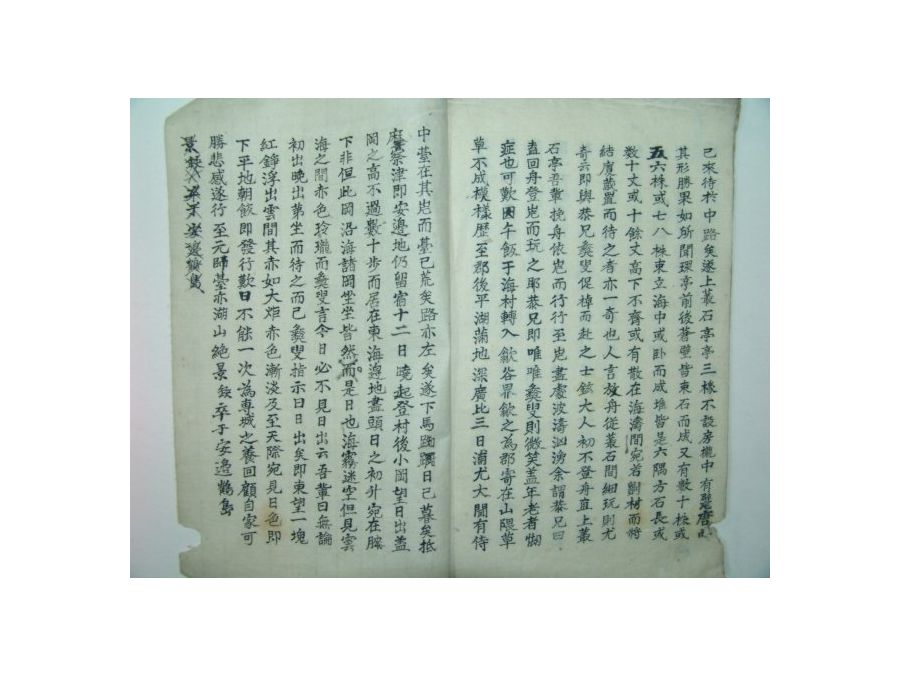 已來待於中路矣遂上叢石亭亭三椽不設房櫳中有
其形勝果如所聞環亭前後蒼壁皆束石而成又有數十株或
五六株或七八株束立海中或卧而成堆皆是六隅方石長或
數十丈或十餘丈高下不齊或有散在海濤間宛若劊材而將
結廈叢置而待之者亦一奇也人言放舟從叢石間細玩則尤
奇云即與恭兄彝叟促棹而赴之士鉉大人初不登舟直上叢
石亭吾輩挽舟依岜而行行至岜盡處波濤洶湧余謂恭兄曰
盍回舟登岜而玩之耶恭兄即唯唯彝叟則微笑盖年老者惻
症也可歎國午飯于海村轉入歙谷界歙之為郡寄在山隈草
草不成模樣歷至郡後平湖蒲地深廣比三日浦尤大閒有侍
中䑓在其岜而䑓已荒矣路亦左矣遂下馬踟躕日已暮矣抵
祭津即安邊地仍留宿十二日曉起登村後小岡望日出盖
岡之高不過數十步而居在東海邊地盡頭日之初升宛在牕
下非但此岡沿海諸岡坐坐皆然而是日也海霧迷空但見雲
海之間赤色玲瓏而彝叟言今日必不見日出云吾輩曰無論
初出晚出第坐而待之而已彝叟指示曰日出矣即東望一塊
紅錚浮出雲間其赤如大炸赤色漸淡及至天際宛見日色即
下平地朝飯即發行歎日不能一次為專城之養回顧自家可
勝悲感遂行至元師臺亦湖山絕景歟卒于安邉鶴島
景 安邉鶴島